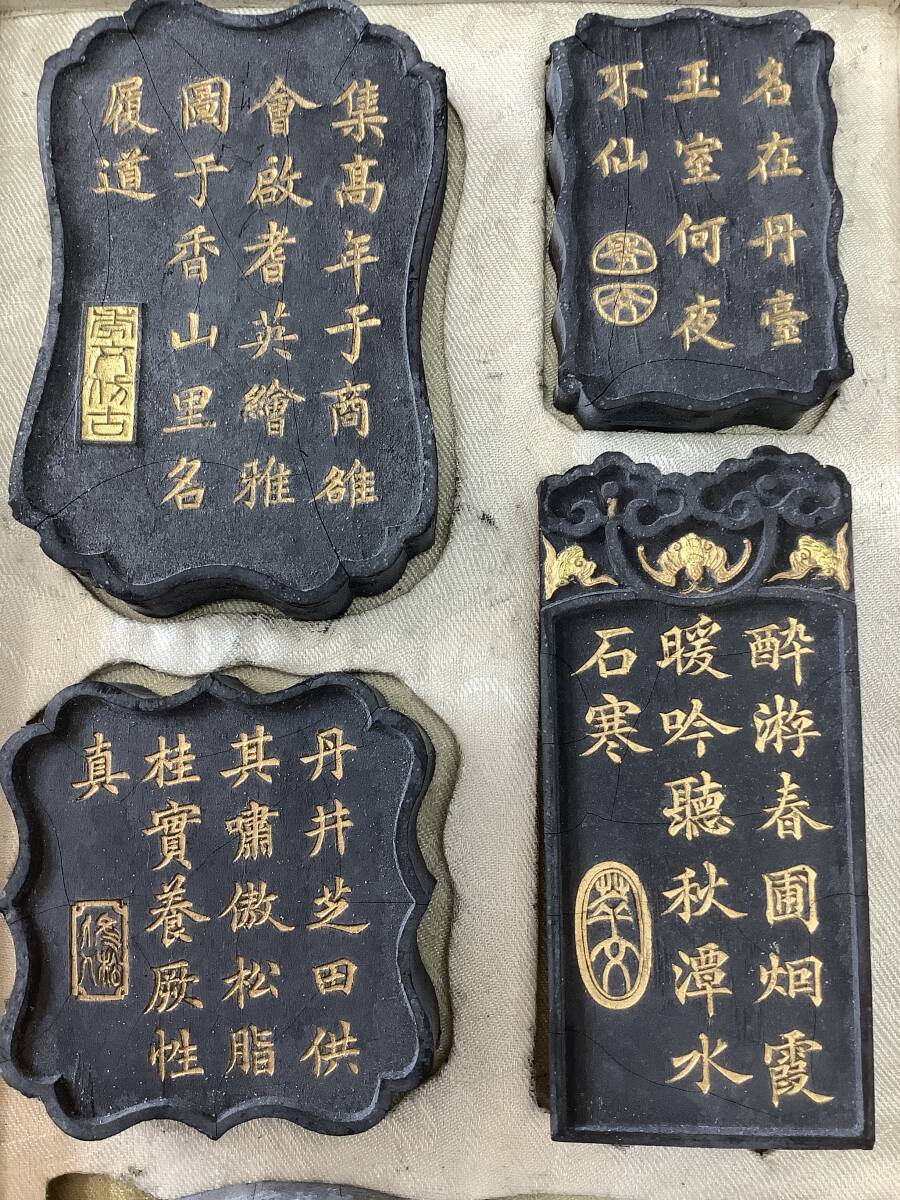 集髙年于商雒
會啟耆英繪雅
圖于香山里名
履道
名在丹臺
玉室何夜
不仙
丹井芝田供
其嘯傲松脂
桂實養厥性
真
酔游春圃烟霞
暖吟聽秋潭水
石寒